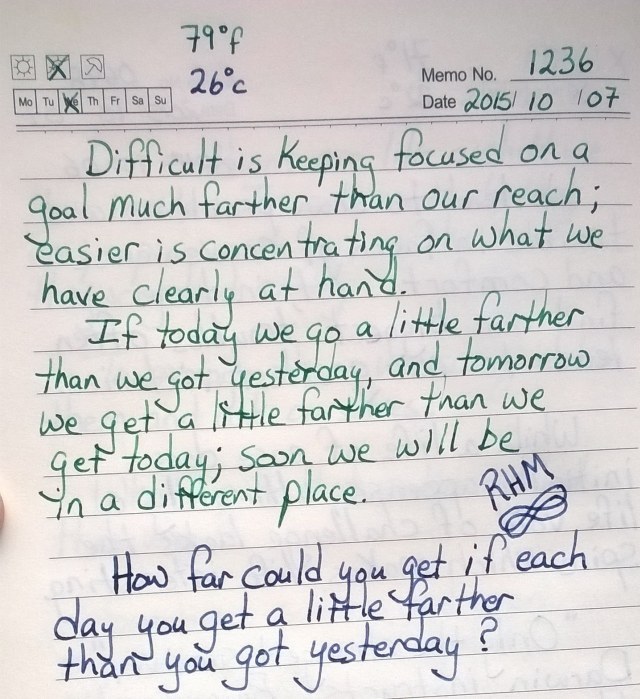 79°f
26°c
Memo No. 1236
Mo Tu We Th Fr Sa Su
Date 2015/ 10 / 07
Difficult is Keeping focused on a
goal much farther than our reach;
easier is concentrating on what we
have clearly at hand.
If today we go a little farther
than we got yesterday, and tomorrow
we get a little farther than we
get today; soon we will be
in a different place.
RHM
How far could you get if each
day you get a little farther
than you got yesterday?